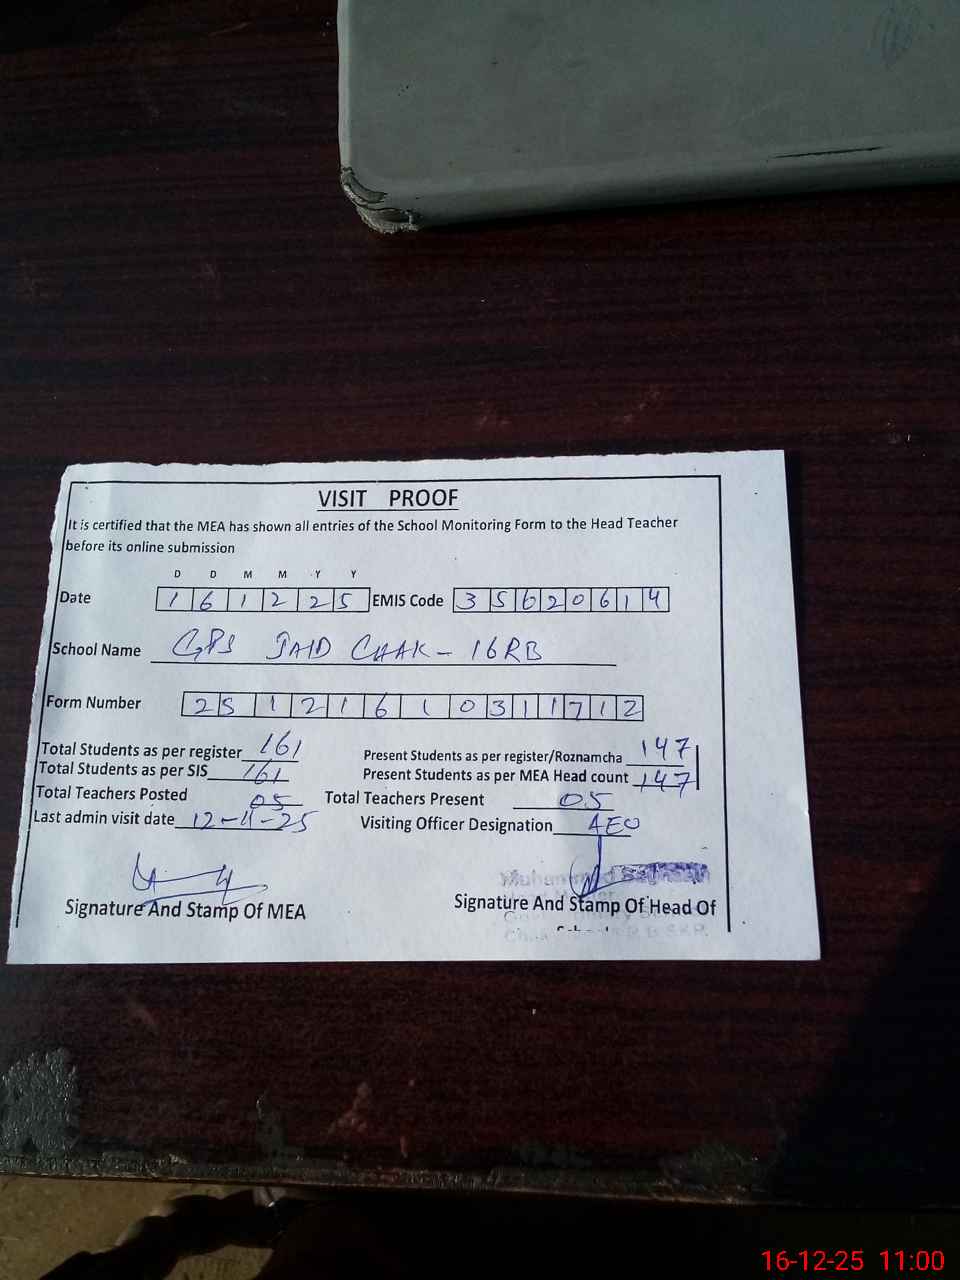 VISIT PROOF
It is certified that the MEA has shown all entries of the School Monitoring Form to the Head Teacher
before its online submission
D D M M Y Y
Date 1 6 1 2 2 5 EMIS Code 3 5 6 2 0 6 1 4
School Name GPS JAID CHAK - 16RB
Form Number 2 5 1 2 1 6 1 0 3 1 1 7 1 2
Total Students as per register 161 Present Students as per register/Roznamcha 147
Total Students as per SIS 161 Present Students as per MEA Head count 147
Total Teachers Posted 05 Total Teachers Present 05
Last admin visit date 12-11-25 Visiting Officer Designation AEO
Muhammad
Signature And Stamp Of MEA Signature And Stamp Of Head Of
16-12-25 11:00